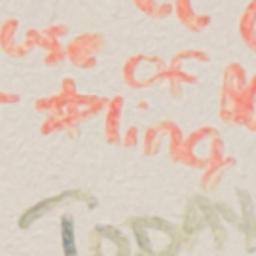 use of
#ling
TODAY